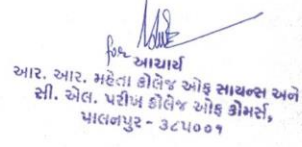 for આચાર્ય
આર. આર. મહેતા કોલેજ ઓફ સાયન્સ અને
સી. એલ. પરીખ કોલેજ ઓફ કોમર્સ,
પાલનપુર - ૩૮૫૦૦૧